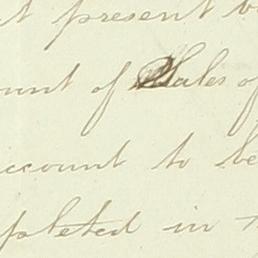 t present
unt of Sales of
ccount to be
pleted in